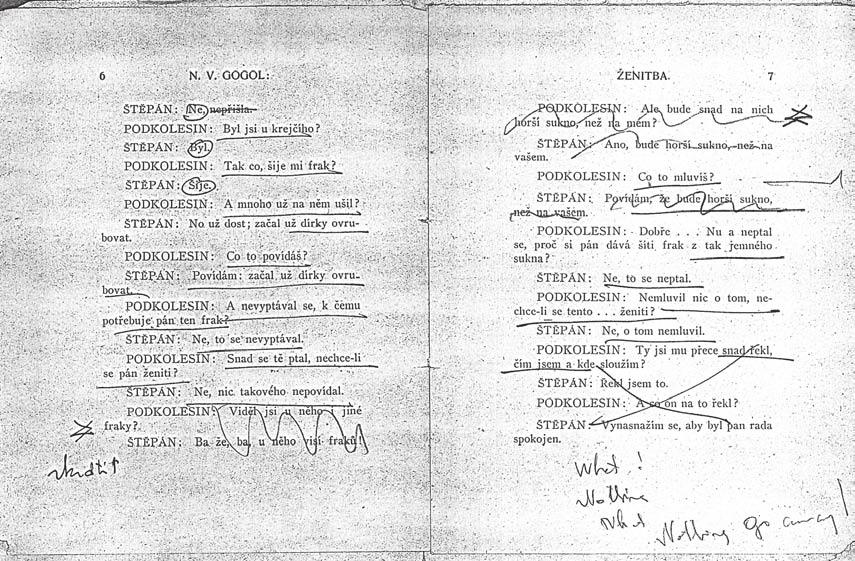 6
N. V. GOGOL:
ŠTĚPÁN: Ne, nepřišla.
PODKOLESIN: Byl jsi u krejčího?
ŠTĚPÁN: Byl.
PODKOLESIN: Tak co, šije mi frak?
ŠTĚPÁN: Šije.
PODKOLESIN: A mnoho už na něm ušil?
ŠTĚPÁN: No už dost; začal už dírky ovru-
bovat.
PODKOLESIN: Co to povídáš?
ŠTĚPÁN: Povídám: začal už dírky ovru-
bovat.
PODKOLESIN: A nevyptával se, k čemu
potřebuje pán ten frak?
ŠTĚPÁN: Ne, to se nevyptával.
PODKOLESIN: Snad se tě ptal, nechce-li
se pán ženiti?
ŠTĚPÁN: Ne, nic takového nepovídal.
PODKOLESIN: Viděl jsi u něho i jiné
fraky?
ŠTĚPÁN: Ba že, ba, u něho visí fraků!
ŽENITBA.
7
PODKOLESIN: Ale bude snad na nich
horší sukno, než na mém?
ŠTĚPÁN: Ano, bude horší sukno, než na
vašem.
PODKOLESIN: Co to mluvíš?
ŠTĚPÁN: Povídám, že bude horší sukno,
než na vašem.
PODKOLESIN: Dobře . . . Nu a neptal
se, proč si pán dává šíti frak z tak jemného
sukna?
ŠTĚPÁN: Ne, to se neptal.
PODKOLESIN: Nemluvil nic o tom, ne-
chce-li se tento . . . ženiti?
ŠTĚPÁN: Ne, o tom nemluvil.
PODKOLESIN: Ty jsi mu přece snad řekl,
čím jsem a kde sloužím?
ŠTĚPÁN: Řekl jsem to.
PODKOLESIN: A co on na to řekl?
ŠTĚPÁN: Vynasnažím se, aby byl pan rada
spokojen.
What!
Nothing
What
Nothing go away!